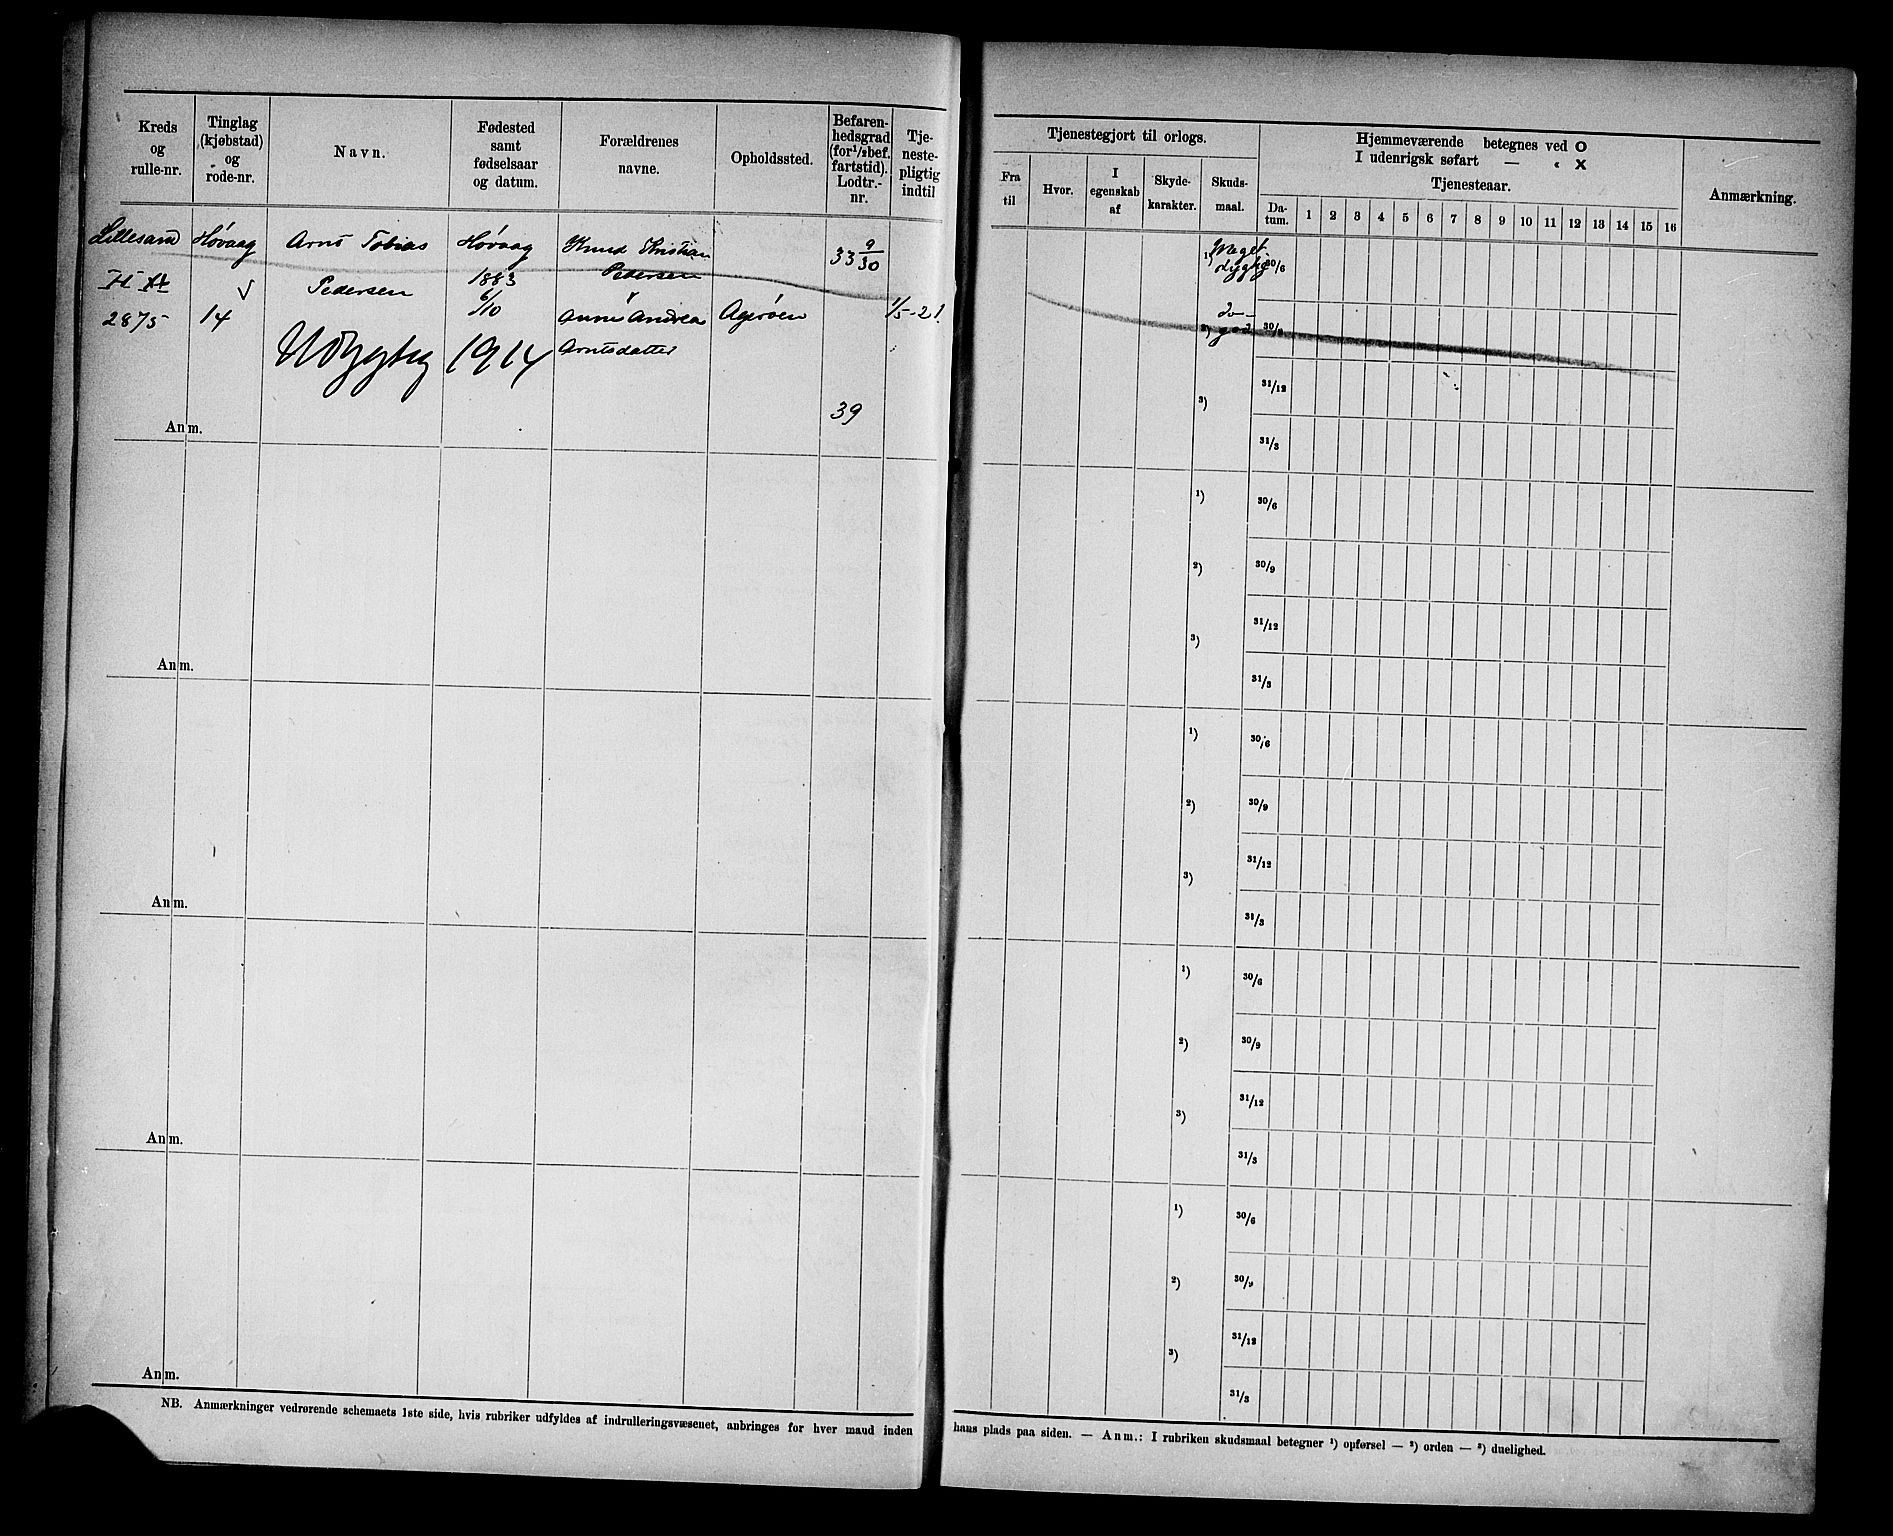 Kreds og rulle-nr.
Tinglag (kjøbstad) og rode-nr.
Navn.
Fødested samt fødselsaar og datum.
Forældrenes navne.
Opholdssted.
Befarenhedsgrad (for ¹/₂bef. fartstid). Lodtr.-nr.
Tjenestepligtig indtil
Tjenestegjort til orlogs.
Fra til
Hvor.
I egenskab af
Skydekarakter.
Skudsmaal.
Hjemmeværende betegnes ved O
I udenrigsk søfart — " X
Tjenesteaar.
Datum. 1 2 3 4 5 6 7 8 9 10 11 12 13 14 15 16
Anmærkning.
Lillesand Høvaag Arnt Tobias Høvaag Knud Kristian 33 9/30
Pedersen
1883
Pedersen
6/10
2875 14 Anne Andrea Agerøen 1/5-21.
Arntsdatter
1914
39
Anm.
¹) Meget dygtig 30/6
²) god 30/9
³) 31/12
31/3
Anm.
¹) 30/6
²) 30/9
³) 31/12
31/3
Anm.
¹) 30/6
²) 30/9
³) 31/12
31/3
Anm.
¹) 30/6
²) 30/9
³) 31/12
31/3
Anm.
¹) 30/6
²) 30/9
³) 31/12
31/3
NB. Anmærkninger vedrørende schemaets 1ste side, hvis rubriker udfyldes af indrulleringsvæsenet, anbringes for hver mand inden hans plads paa siden. — Anm.: I rubriken skudsmaal betegner ¹) opførsel — ²) orden — ³) duelighed.